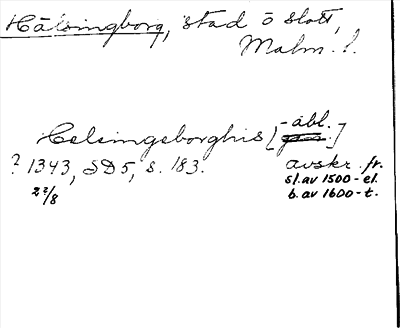 Hälsingborg, stad o slott,
Malm. l.
Helsingeborghis [-abl.
gen.]
? 1343, SD 5, s. 183. avskr. fr.
22/8 sl. av 1500-el.
b. av 1600-t.